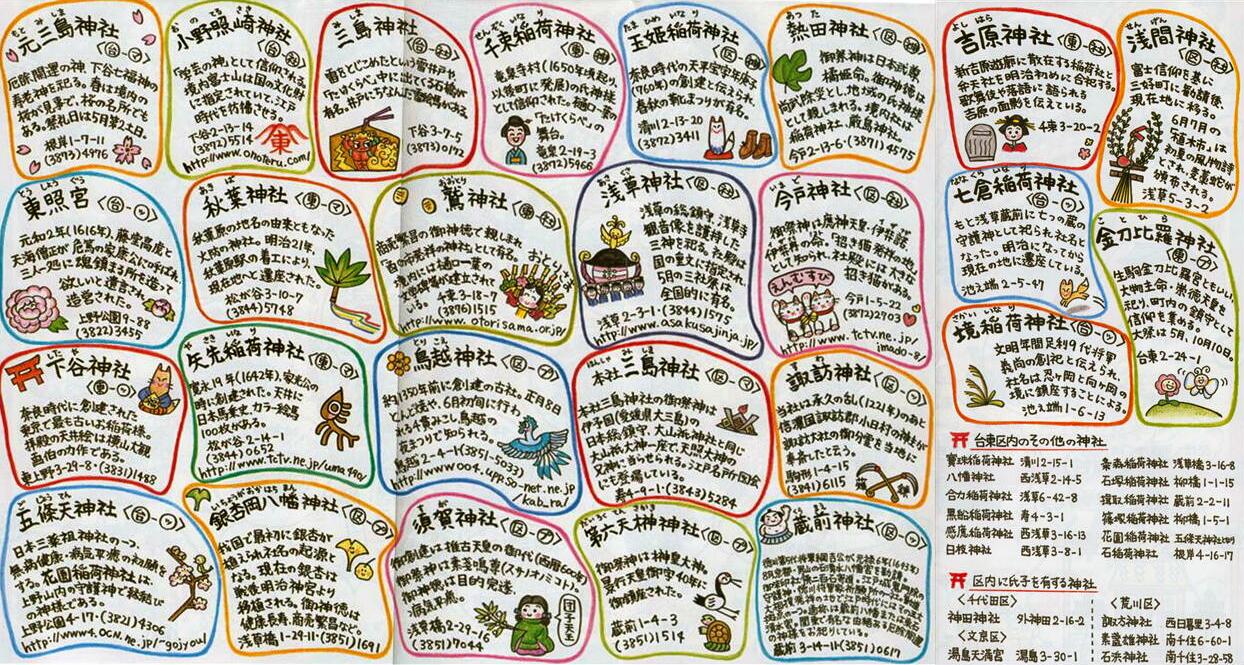 元三島神社〈台-マ〉
もと みしま
厄除開運の神 下谷七福神の
寿老神を記る。春は境内の
桜が見事で、桜の名所でも
ある。祭礼日は5月第2土日。
根岸1-7-11
(3873)4976
小野照崎神社〈台-社〉
おのてるさき
「学芸の神」として信仰される
境内富士山は国の文化財
に指定されていて、江戸
時代を彷彿させる。
下谷2-13-14
(3872)5514
http://www.onoteru.com/
三島神社〈台-社〉
みしま
下谷3-7-5
(3873)0172
千束稲荷神社〈東-神〉
せんぞくいなり
竜泉寺村(1650年頃より、
以後町に発展)の氏神様
として信仰された。樋口一葉の
「たけくらべ」の
舞台。
竜泉2-19-3
(3872)5966
玉姫稲荷神社〈区-神〉
たまひめいなり
奈良時代の天平宝字年年
(760年)の創建と伝えられ
春秋の靴まつりが有名。
清川2-13-20
(3872)3411
熱田神社〈区-神〉
あつた
御祭神は日本武尊
橘姫命。御神徳は
として親しまれる。境内社は
稲荷神社、厳島神社。
今戸2-13-6・(3871)4575
吉原神社〈東-社〉
よしはら
新吉原遊廓に散在する稲荷社と
弁天社を明治初めに合祀する。
歌舞伎や落語に語られる
吉原の面影を伝えている。
千束3-20-2
浅間神社〈区-社〉
せんげん
富士信仰を基に
三好町に勧請後、
現在地に移る。
6月7月の
「植木市」は
初夏の風物詩
とされ、麦藁蛇が
頒布される。
浅草5-3-2
東照宮〈台-ッ〉
とうしょうぐう
元和2年(1616年)、藤堂高虎と
天海僧正が危篤の家康公に呼ばれ
三人一処に魂鎮まる所を造って
欲しいと遺言され
造営された。
上野公園9-88
(3822)3455
秋葉神社〈東-マ〉
あきば
秋葉原の地名の由来となった
火防の神社。明治21年、
秋葉原駅の着工により、
現在地へと遷座された。
松が谷3-10-7
(3844)5748
鷲神社〈東-社〉
おおとり
商売繁昌の御神徳で親しまれ
「酉の市発祥の神社」として有名。
境内には樋口一葉の
文学碑が建立されて
千束3-18-7
(3876)1515
おとりさま
http://www.otorisama.or.jp/
浅草神社〈区-社〉
あさくさ
浅草の総鎮守 浅草寺
観音像を護持した
三神を祀る。社殿は
国の重文に指定され
5月の三社祭は
全国的に有名。
浅草2-3-1・(3844)1575
http://www.asakusajinja.jp/
今戸神社〈区-社〉
いまど
御祭神は應神天皇・伊弉諾、
伊弉冉の命。「招き猫発祥の地」
として知られ、社殿には大きな
招き猫がある。
えんむすび
今戸1-5-22
(3872)2703
http://www.tctv.ne.jp/
imado-8/
七倉稲荷神社〈台-ッ〉
ななくらいなり
もと浅草蔵前に七つの蔵の
守護神として祀られ社名と
なった。明治になってから
現在の地に遷座している。
池之端2-5-47
金刀比羅神社〈東-ブ〉
ことひら
生駒金刀比羅宮ともいい、
大物主命・崇徳天皇を
祀り、町内の鎮守として
信仰を集める。
大祭は5月、10月10日。
台東2-24-1
境稲荷神社〈台-ッ〉
さかいいなり
文明年間足利9代将軍
義尚の創祀と伝えられ、
社名は忍ヶ岡と向ヶ岡の
境に鎮座することによる。
池之端1-6-13
下谷神社〈東-ッ〉
したや
奈良時代に創建された
東京で最も古いお稲荷様。
拝殿の天井絵は横山大観
画伯の力作である。
東上野3-29-8・(3831)1488
矢先稲荷神社〈東-マ〉
やさきいなり
寛永19年(1642年)、家光公の
時に創建された。天井に
日本馬乗史、カラー絵馬
100枚がある。
松が谷2-14-1
(3844)0652
http://www.tctv.ne.jp/uma49a/
鳥越神社〈区-ブ〉
とりごえ
約1350年前に創建の古社。正月8日
とんど焼や、6月初旬に行わ
れる千貫みこし鳥越の
夜まつりで知られる。
鳥越2-4-1(3851)5033
http://www004.upp.so-net.ne.jp
/kab_ra/
本社三島神社〈区-マ〉
ほんしゃみしま
本社三島神社の御祭神は
伊予国(愛媛県大三島)の
日本総鎮守、大山祇神社と同じ
大山祇大神一座で天照大神の
兄神に当られる。江戸名所図絵
にも登場している。
寿4-9-1・(3843)5284
諏訪神社〈区-ブ〉
すわ
当社は承久の乱(1221年)のあと
信濃国諏訪郡小日村の神社が
諏訪大社の御分霊を当地に
奉斎したと云う。
駒形1-4-15
(3841)6115
五條天神社〈台-ッ〉
ごじょうてん
日本三薬祖神社の一つ。
無病健康・病気平癒の祈願を
する。花園稲荷神社は
上野山内の守護神で縁結び
の神様である。
上野公園4-17・(3821)4306
http://www4.ocn.ne.jp/~gojyou/
銀杏岡八幡神社〈区-ブ〉
いちょうがおかはちまん
我国で最初に銀杏が
植えられた名の起源と
なる。現在の銀杏は
戦後明治神宮より
移植される。御神徳は
健康長寿、商売繁昌など。
浅草橋1-29-11・(3851)1691
須賀神社〈区-ブ〉
すが
御創建は推古天皇の御代(西暦600年)
御祭神は素戔嗚尊(スサノオノミコト)。
御神徳は目的完遂、
病気平癒。
浅草橋2-29-16
(3851)7044
団子天王
第六天榊神社〈区-ブ〉
だいろくてんさかき
御祭神は榊皇大神。
景行天皇御宇40年に
御鎮座された。
蔵前1-4-3
(3851)1514
蔵前神社〈区-ブ〉
くらまえ
蔵前3-14-11(3851)0617
台東区内のその他の神社
寶珠稲荷神社 清川2-15-1
八幡神社 西浅草2-14-5
合力稲荷神社 浅草6-42-8
黒船稲荷神社 寿4-3-1
感應稲荷神社 西浅草3-16-13
日枝神社 西浅草3-8-1
秦森稲荷神社 浅草橋3-16-8
石塚稲荷神社 柳橋1-1-15
榎取稲荷神社 蔵前2-2-11
篠塚稲荷神社 柳橋1-5-1
花園稲荷神社 五條天神社内
石稲荷神社 根岸4-16-17
区内に氏子を有する神社
〈千代田区〉
神田神社 外神田2-16-2
〈文京区〉
湯島天満宮 湯島3-30-1
〈荒川区〉
諏方神社 西日暮里3-4-8
素盞雄神社 南千住6-60-1
石浜神社 南千住3-28-58